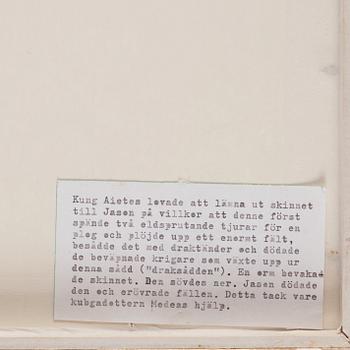 Kung Aietes lovade att lämna ut skinnet
till Jason på villkor att denne först
spände två eldsprutande tjurar för en
plog och plöjde upp ett enormt fält,
besådde det med draktänder och dödade
de beväpnade krigare som växte upp ur
denna sådd ("draksådden"). En orm bevaka-
de skinnet. Den sövdes ner. Jason dödade
den och erövrade fällen. Detta tack vare
kubgadottern Medeas hjälp.